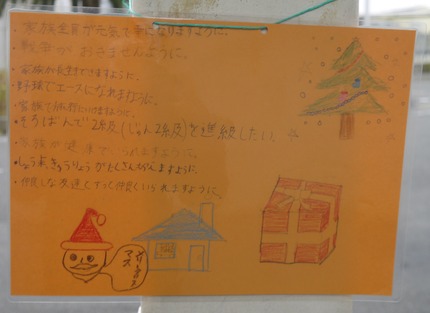 ・家族全員が元気で幸になりますように。
・戦争がおきませんように。
・家族が長生きできますように。
・野球でエースになれますように。
・家族で旅行にいけますように。
・そろばんで2級(じゅん2級)を進級したい。
・家族が健康でいられますように。
・しょう来きゅうりょうがたくさんもらえますように。
・仲良しな友達とずっと仲良くいられますように。
メリークリスマス